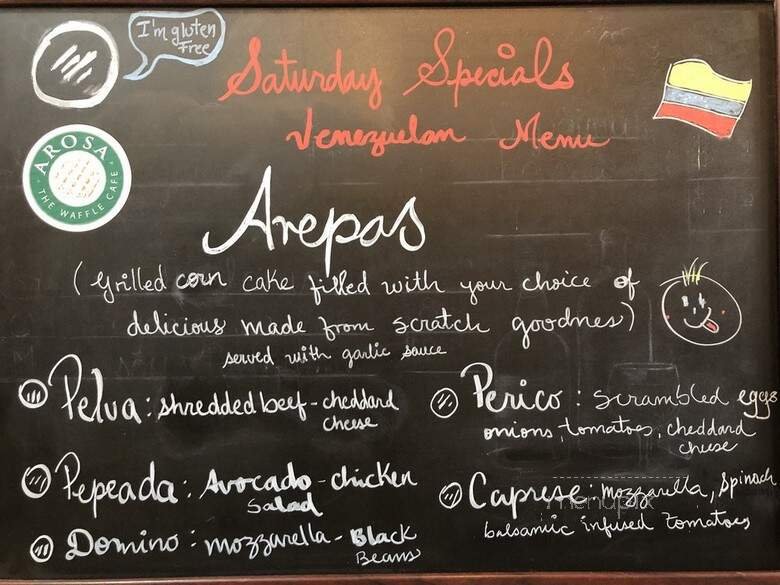 I'm gluten
Free
Saturday Specials
Venezuelan Menu
AROSA
THE WAFFLE CAFE
Arepas
(Grilled corn cake filled with your choice of
delicious made from scratch goodness)
served with garlic sauce
Pelua: shredded beef - cheddard
cheese
Perico: scrambled eggs
onions, tomatoes, cheddard
cheese
Pepeada: Avocado - chicken
Salad
Caprese: mozzarella, spinach
balsamic infused tomatoes
menupix
Domino: mozzarella - Black
Beans